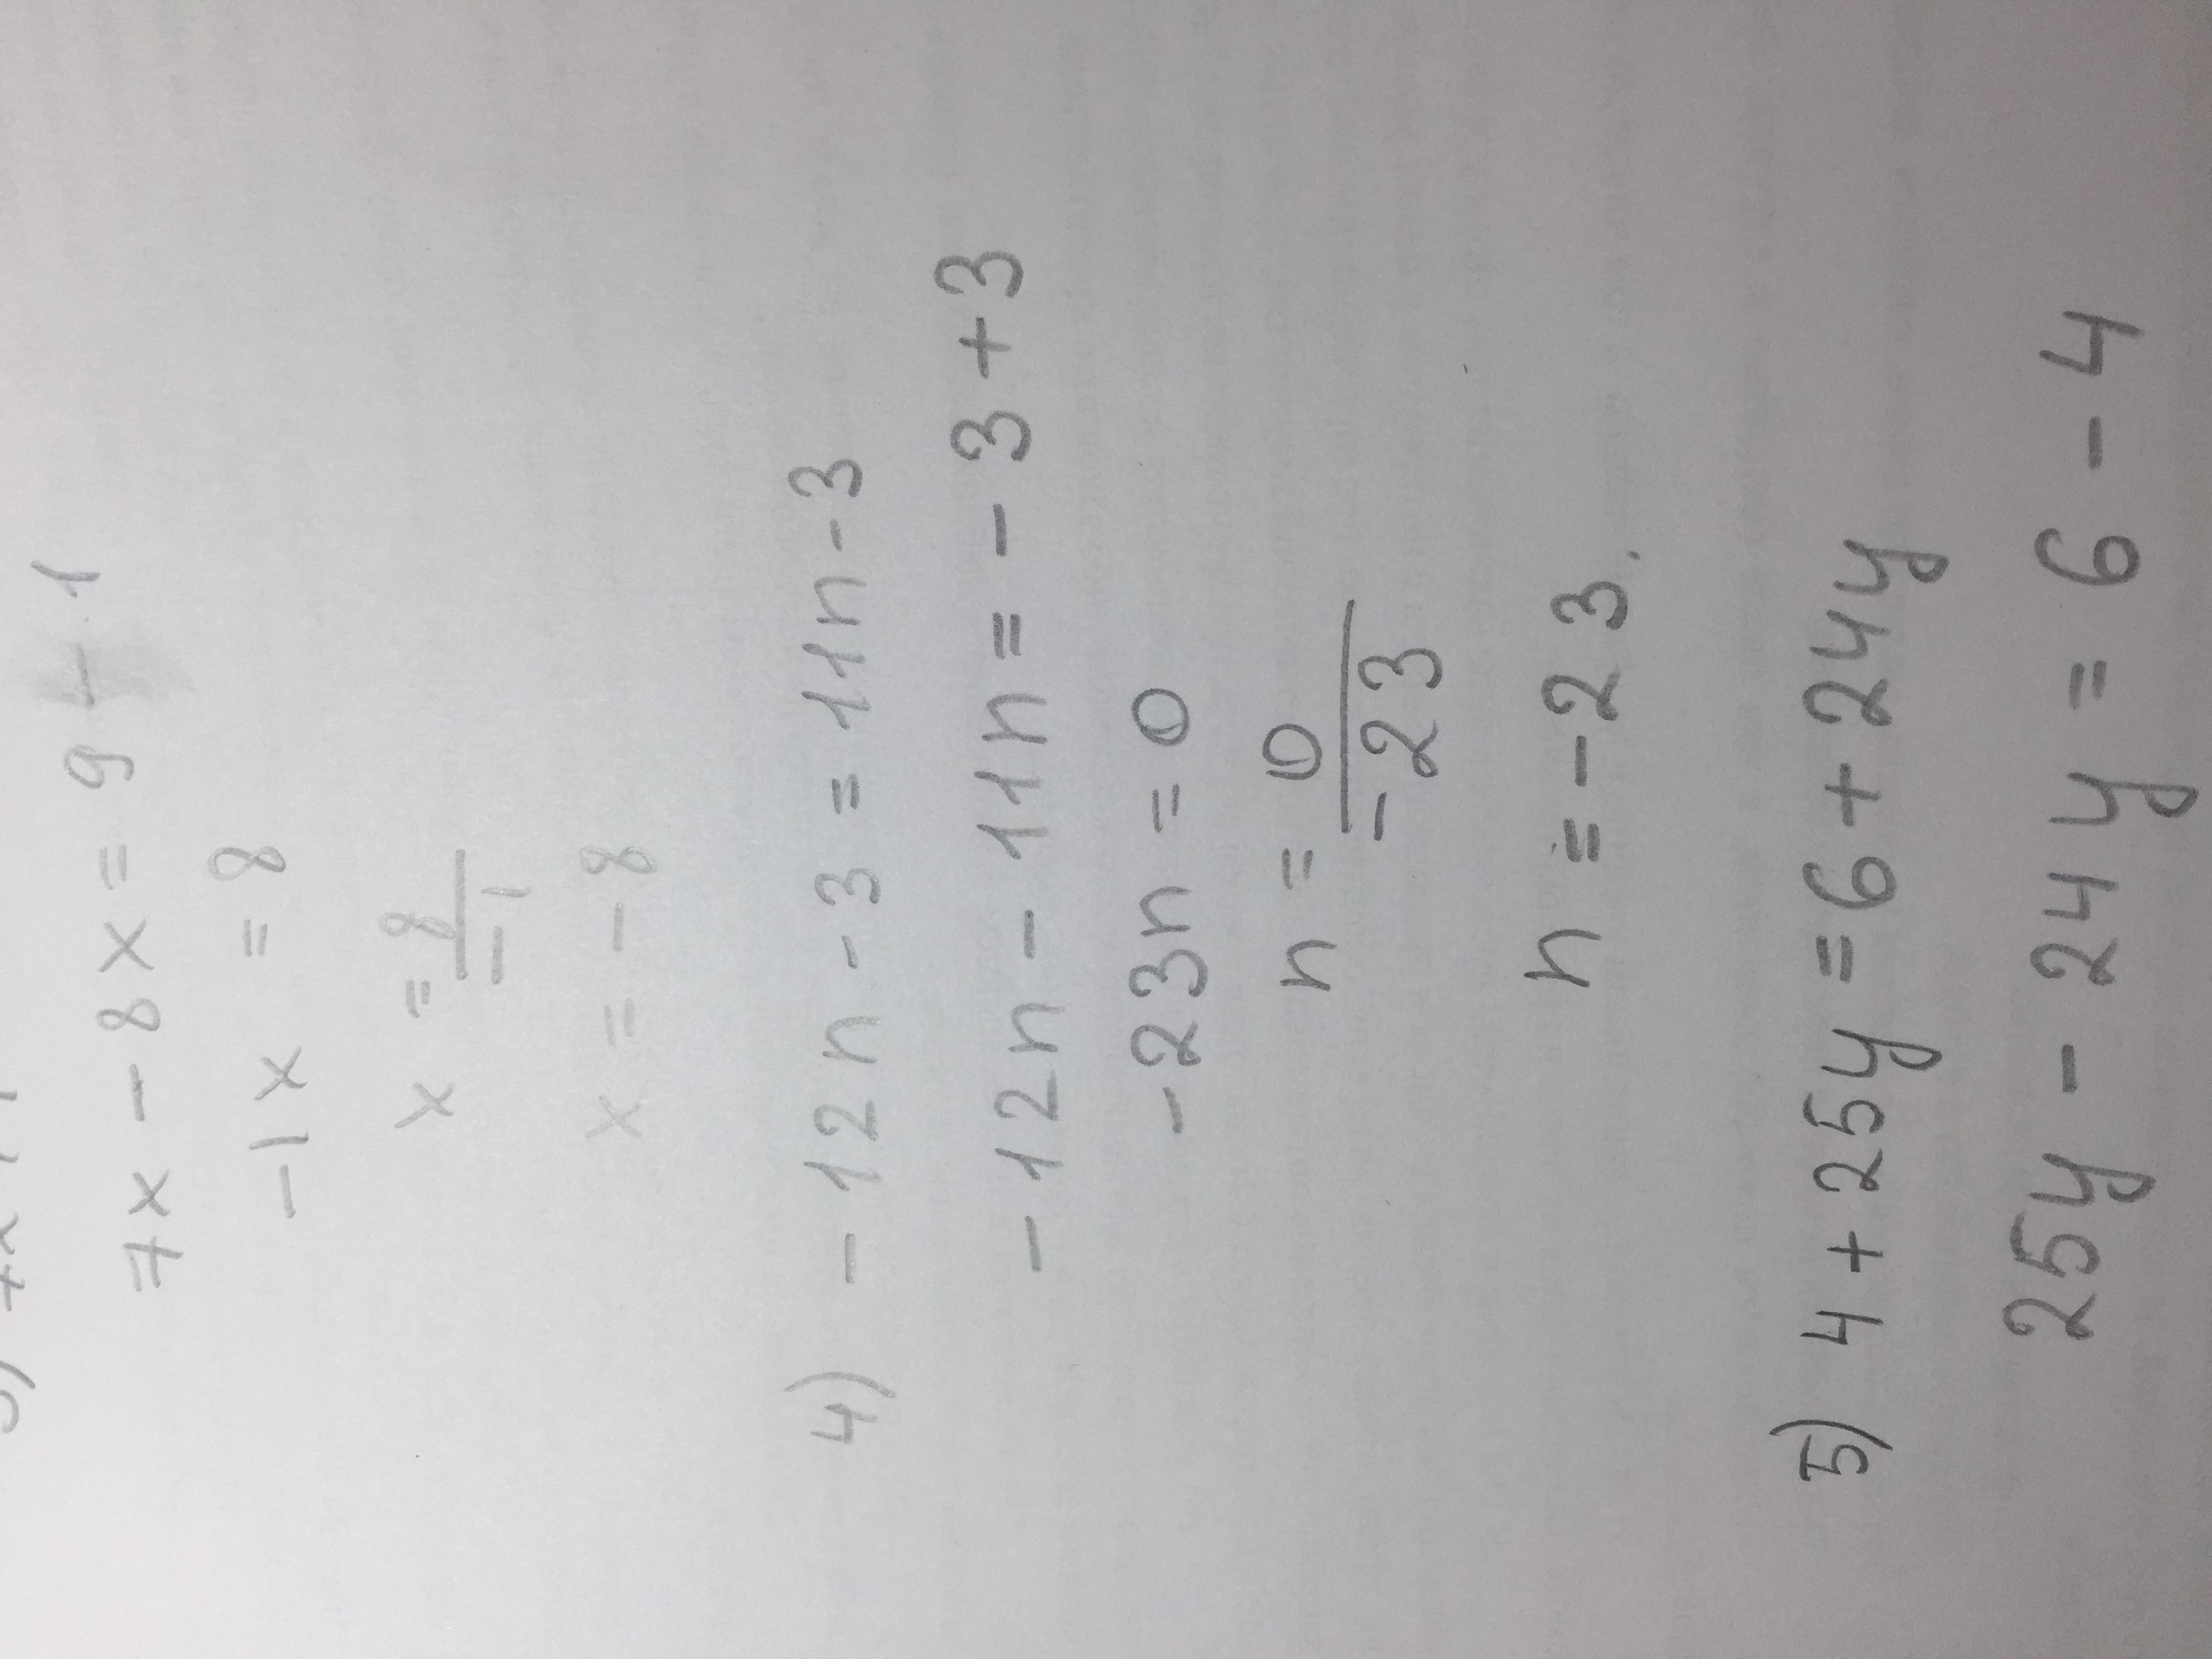 7x - 8x = 9 - 1
-1x = 8
x = 8/-1
x = -8
4) -12n - 3 = 11n - 3
-12n - 11n = -3 + 3
-23n = 0
n = 0/-23
n = -23.
5) 4 + 25y = 6 + 24y
25y - 24y = 6 - 4